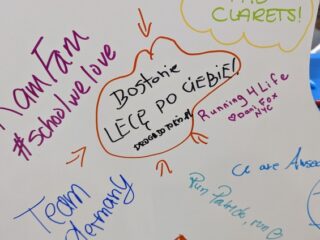 THE
CLARETS!
RamFam
#schoolwelove
Bostonie
LECĘ PO CIEBIE!
Running 4 Life
Dani Fox
NYC
Team
Germany
Run Patrick, run